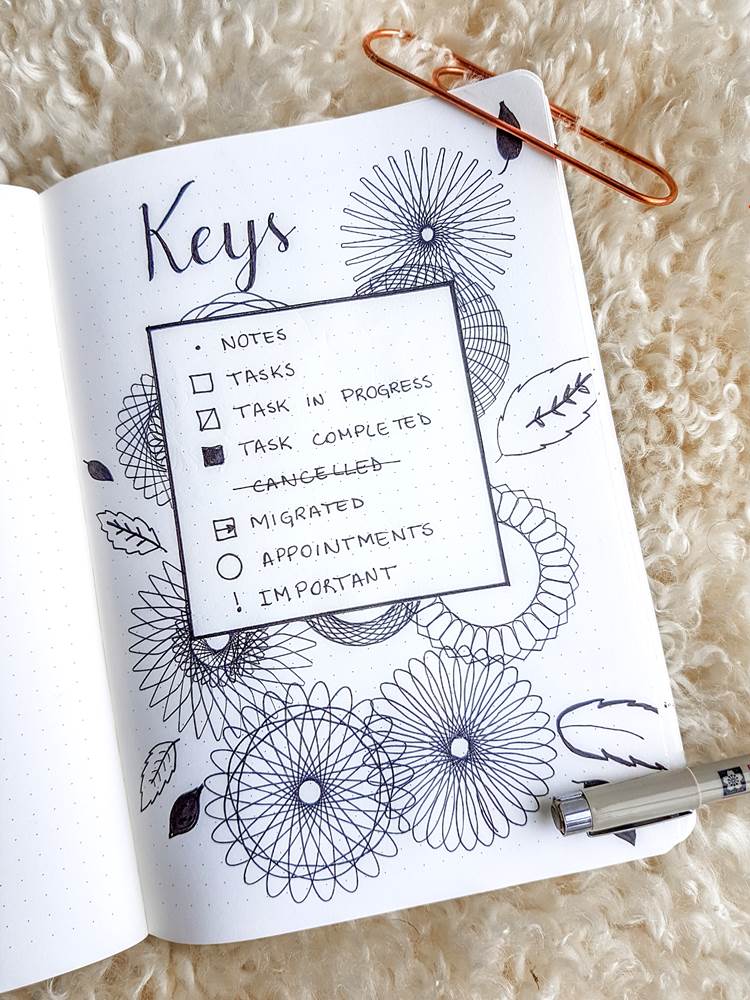 Keys
• NOTES
TASKS
TASK IN PROGRESS
TASK COMPLETED
CANCELLED
MIGRATED
APPOINTMENTS
! IMPORTANT